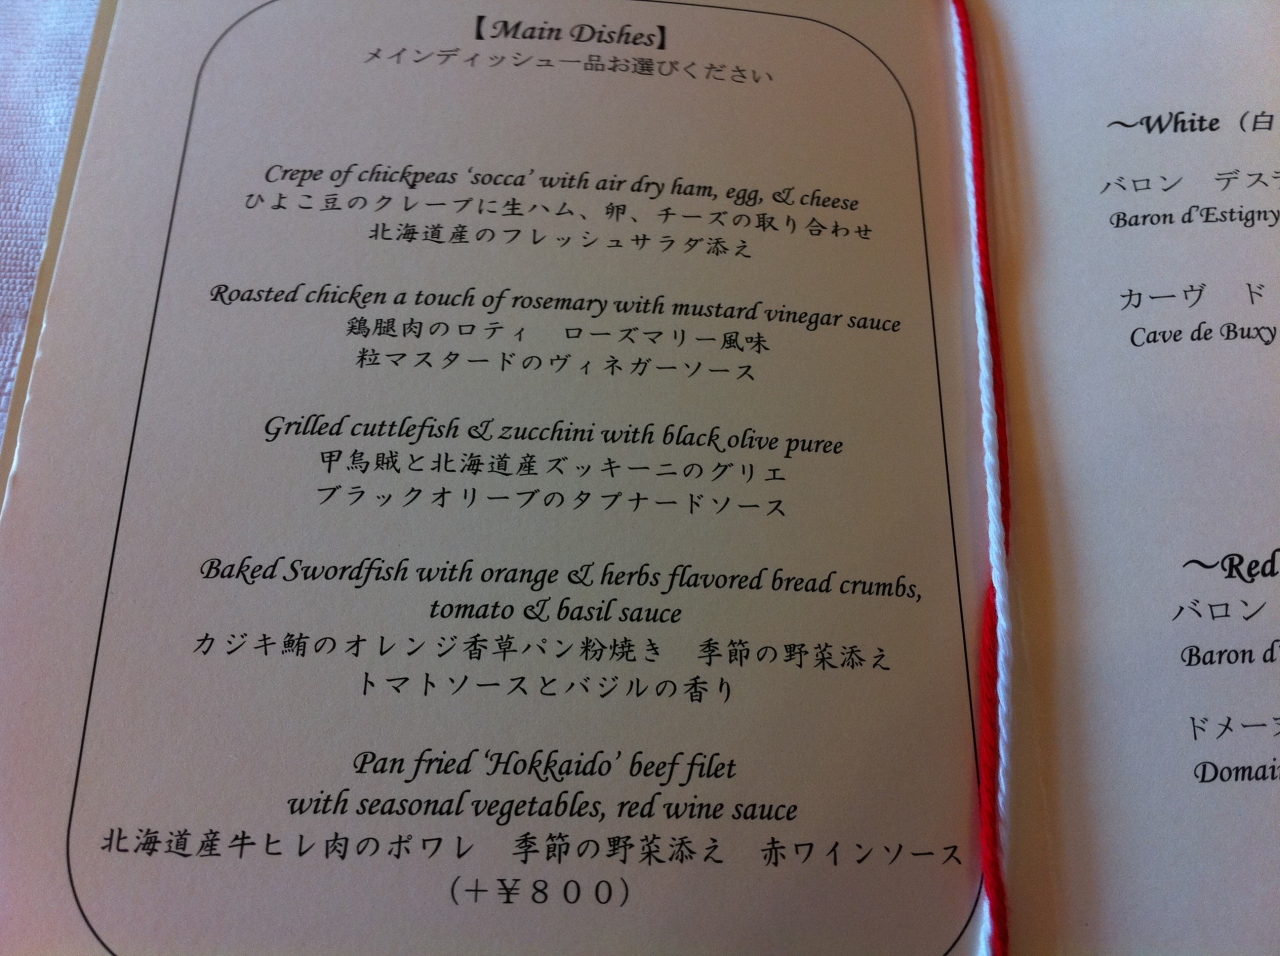 【Main Dishes】
メインディッシュ一品お選びください
Crepe of chickpeas ‘socca’ with air dry ham, egg, & cheese
ひよこ豆のクレープに生ハム、卵、チーズの取り合わせ
北海道産のフレッシュサラダ添え
Roasted chicken a touch of rosemary with mustard vinegar sauce
鶏腿肉のロティ　ローズマリー風味
粒マスタードのヴィネガーソース
Grilled cuttlefish & zucchini with black olive puree
甲烏賊と北海道産ズッキーニのグリエ
ブラックオリーブのタプナードソース
Baked Swordfish with orange & herbs flavored bread crumbs,
tomato & basil sauce
カジキ鮪のオレンジ香草パン粉焼き　季節の野菜添え
トマトソースとバジルの香り
Pan fried ‘Hokkaido’ beef filet
with seasonal vegetables, red wine sauce
北海道産牛ヒレ肉のポワレ　季節の野菜添え　赤ワインソース
(＋￥８００)
～White（白
バロン　デス
Baron d'Estigny
カーヴ　ド
Cave de Buxy
～Red
バロン
Baron d'
ドメーヌ
Domai